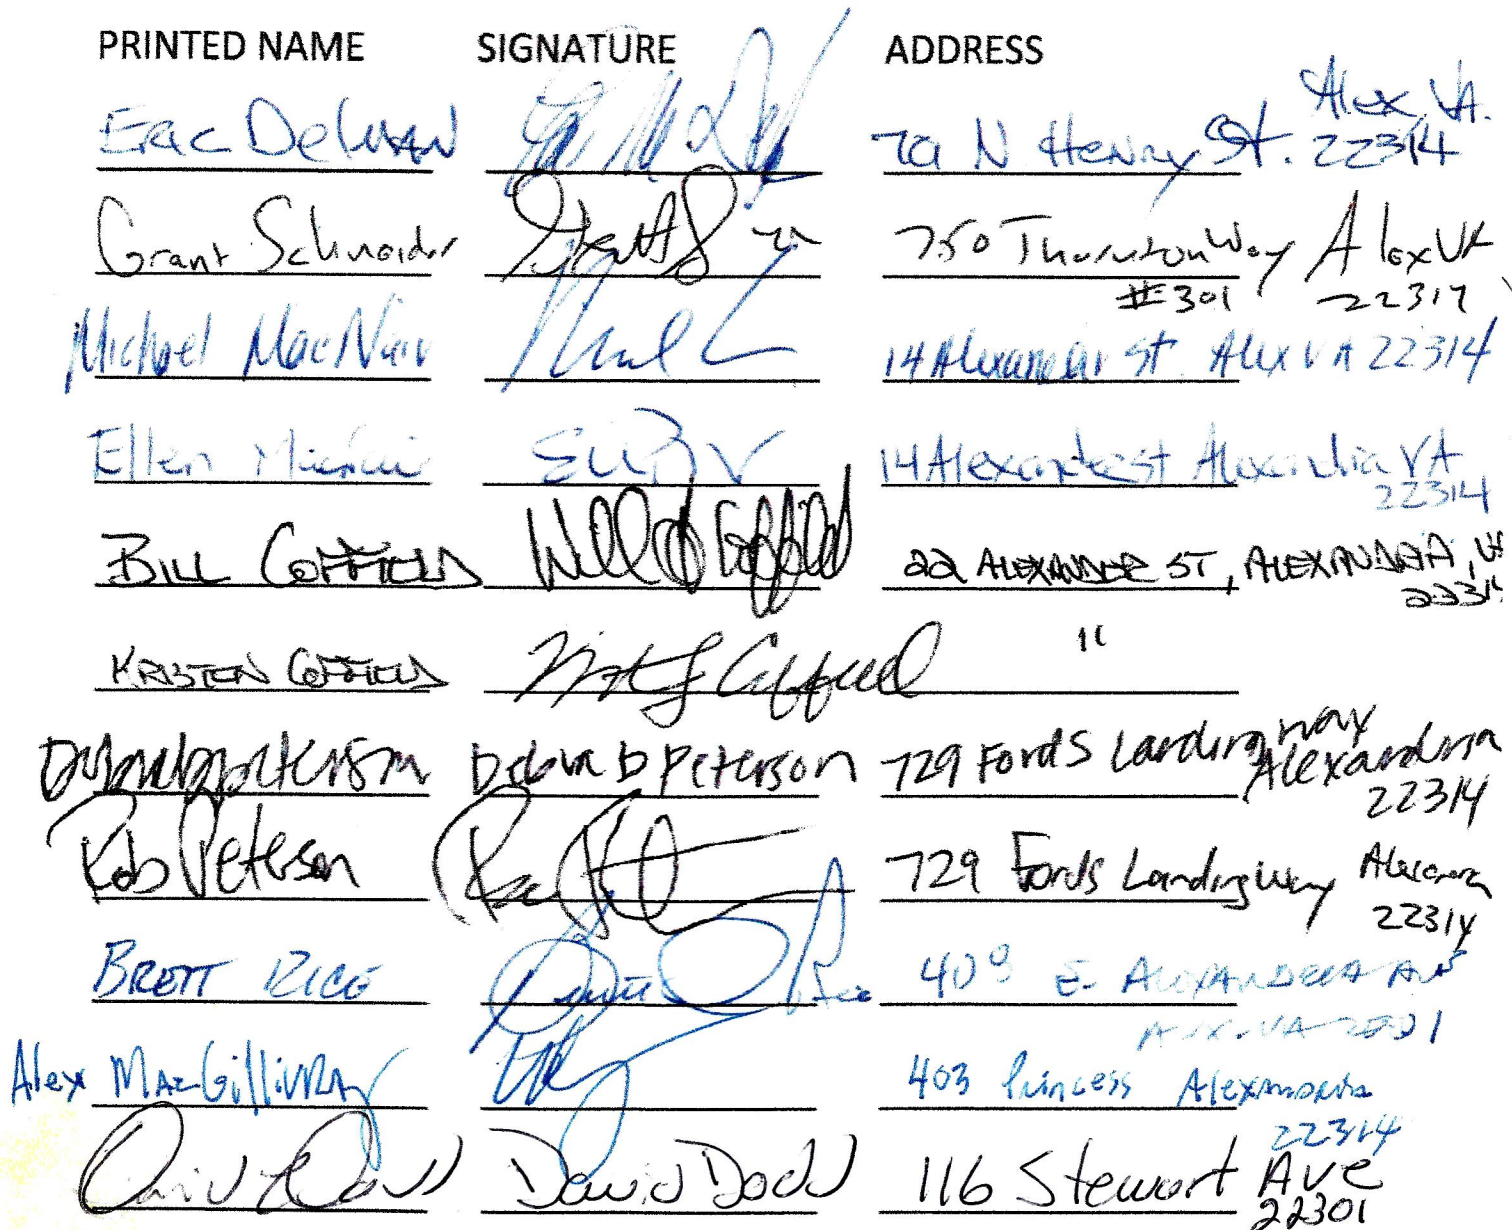 PRINTED NAME SIGNATURE ADDRESS
Eric Delman N Henry St. Alex, VA. 22314
Grant Schneider 750 Thornton Way Alex VA
#301 22314
Michael MacNair 14 Alexander St. Alex VA 22314
Ellen 14 Alexander St Alexandria VA
22314
BILL COFFIELD Will Coffield 22 ALEXANDER ST, ALEXANDRIA, VA
22314
KRISTEN COFFIELD Coffield "
Debra D Peterson 729 Fords Landing way
Alexandria
22314
Rob Peterson 729 Fords Landing Way Alexandria
22314
BRETT RICE 409 E. ALEXANDRIA AVE
ALEX. VA 22301
Alex MacGillivray 403 Princess Alexandria
22314
David Dodd 116 Stewart Ave
22301